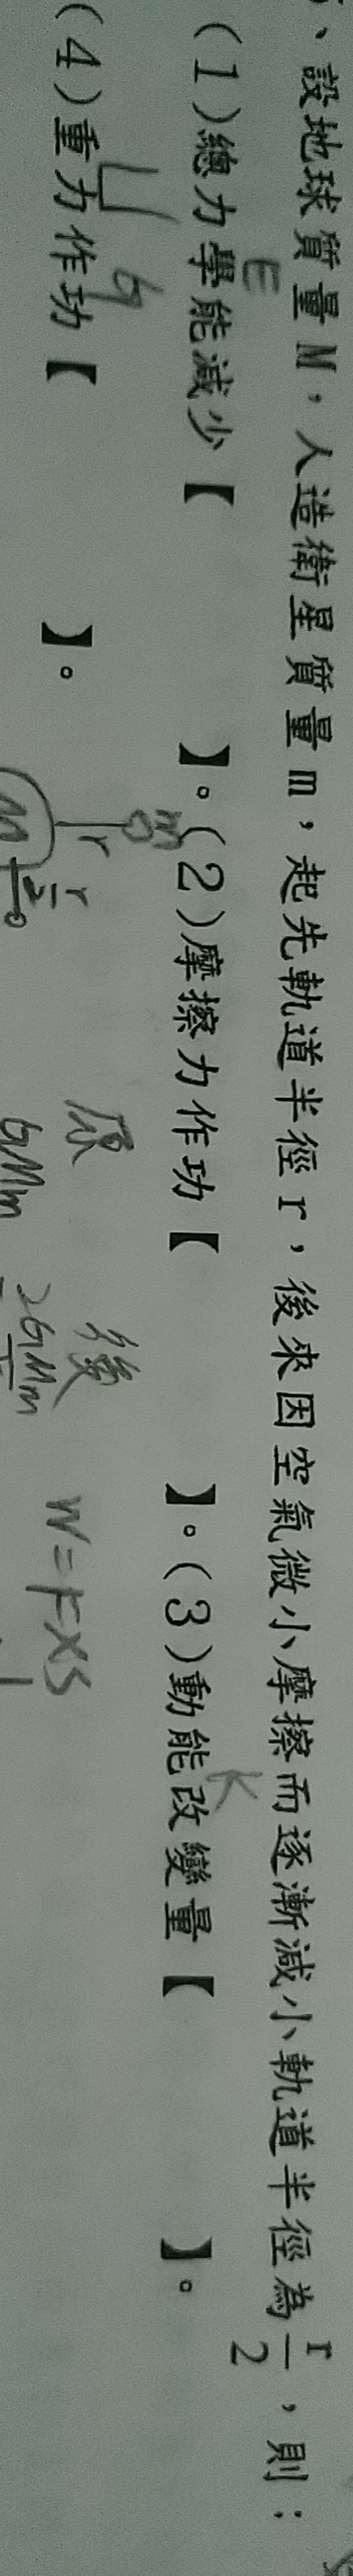 、設地球質量M，人造衛星質量m，起先軌道半徑r，後來因空氣微小摩擦而逐漸減小軌道半徑為r/2，則：
E K
(1)總力學能減少【 】。(2)摩擦力作功【 】。(3)動能改變量【 】。
U g
(4)重力作功【 】。
m
r
r/2
M
原 後
GMm 2GMm
W=F×S